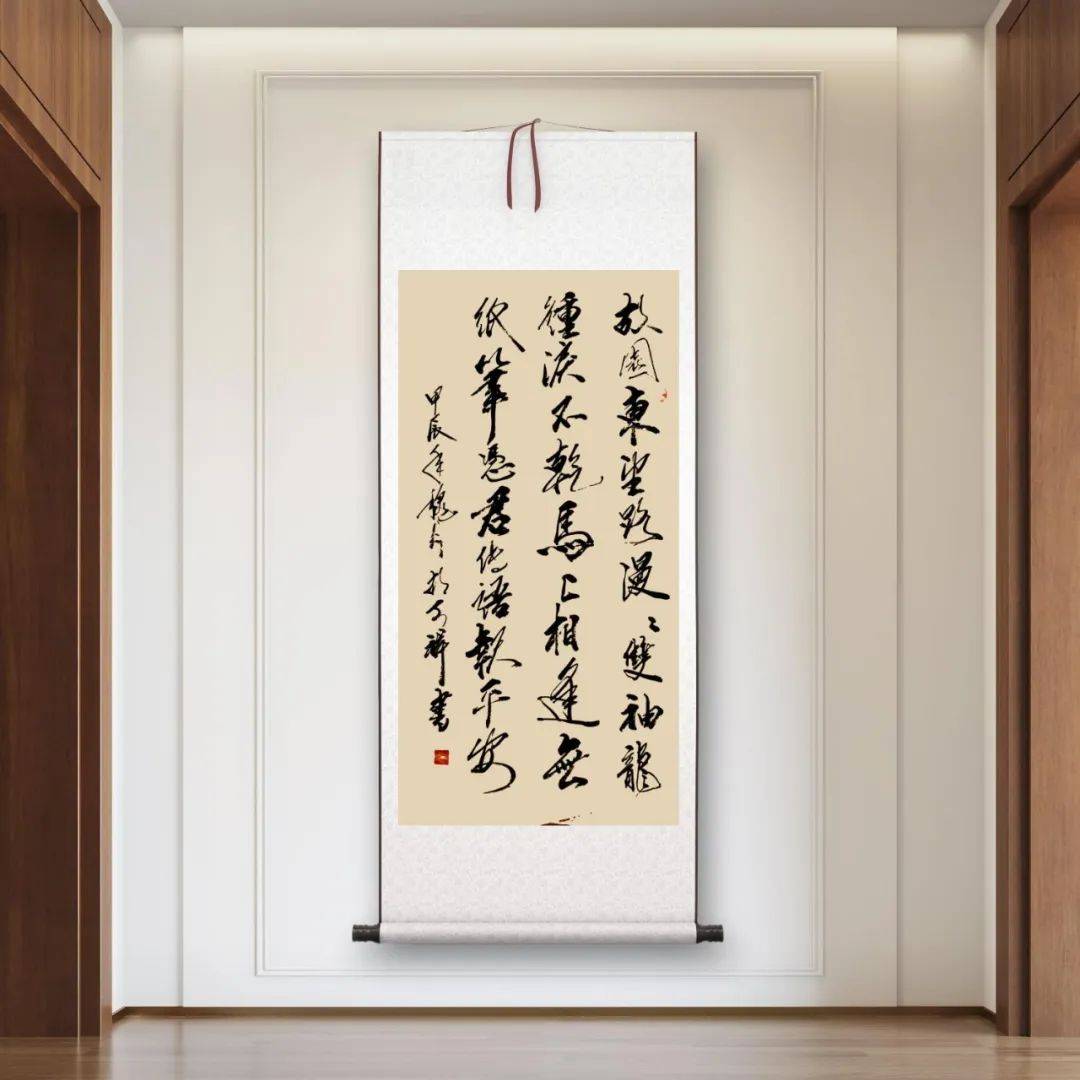 故園東望路漫〻雙袖龍
鍾淚不乾馬上相逢無
紙筆憑君傳語報平安
甲辰年 祥書